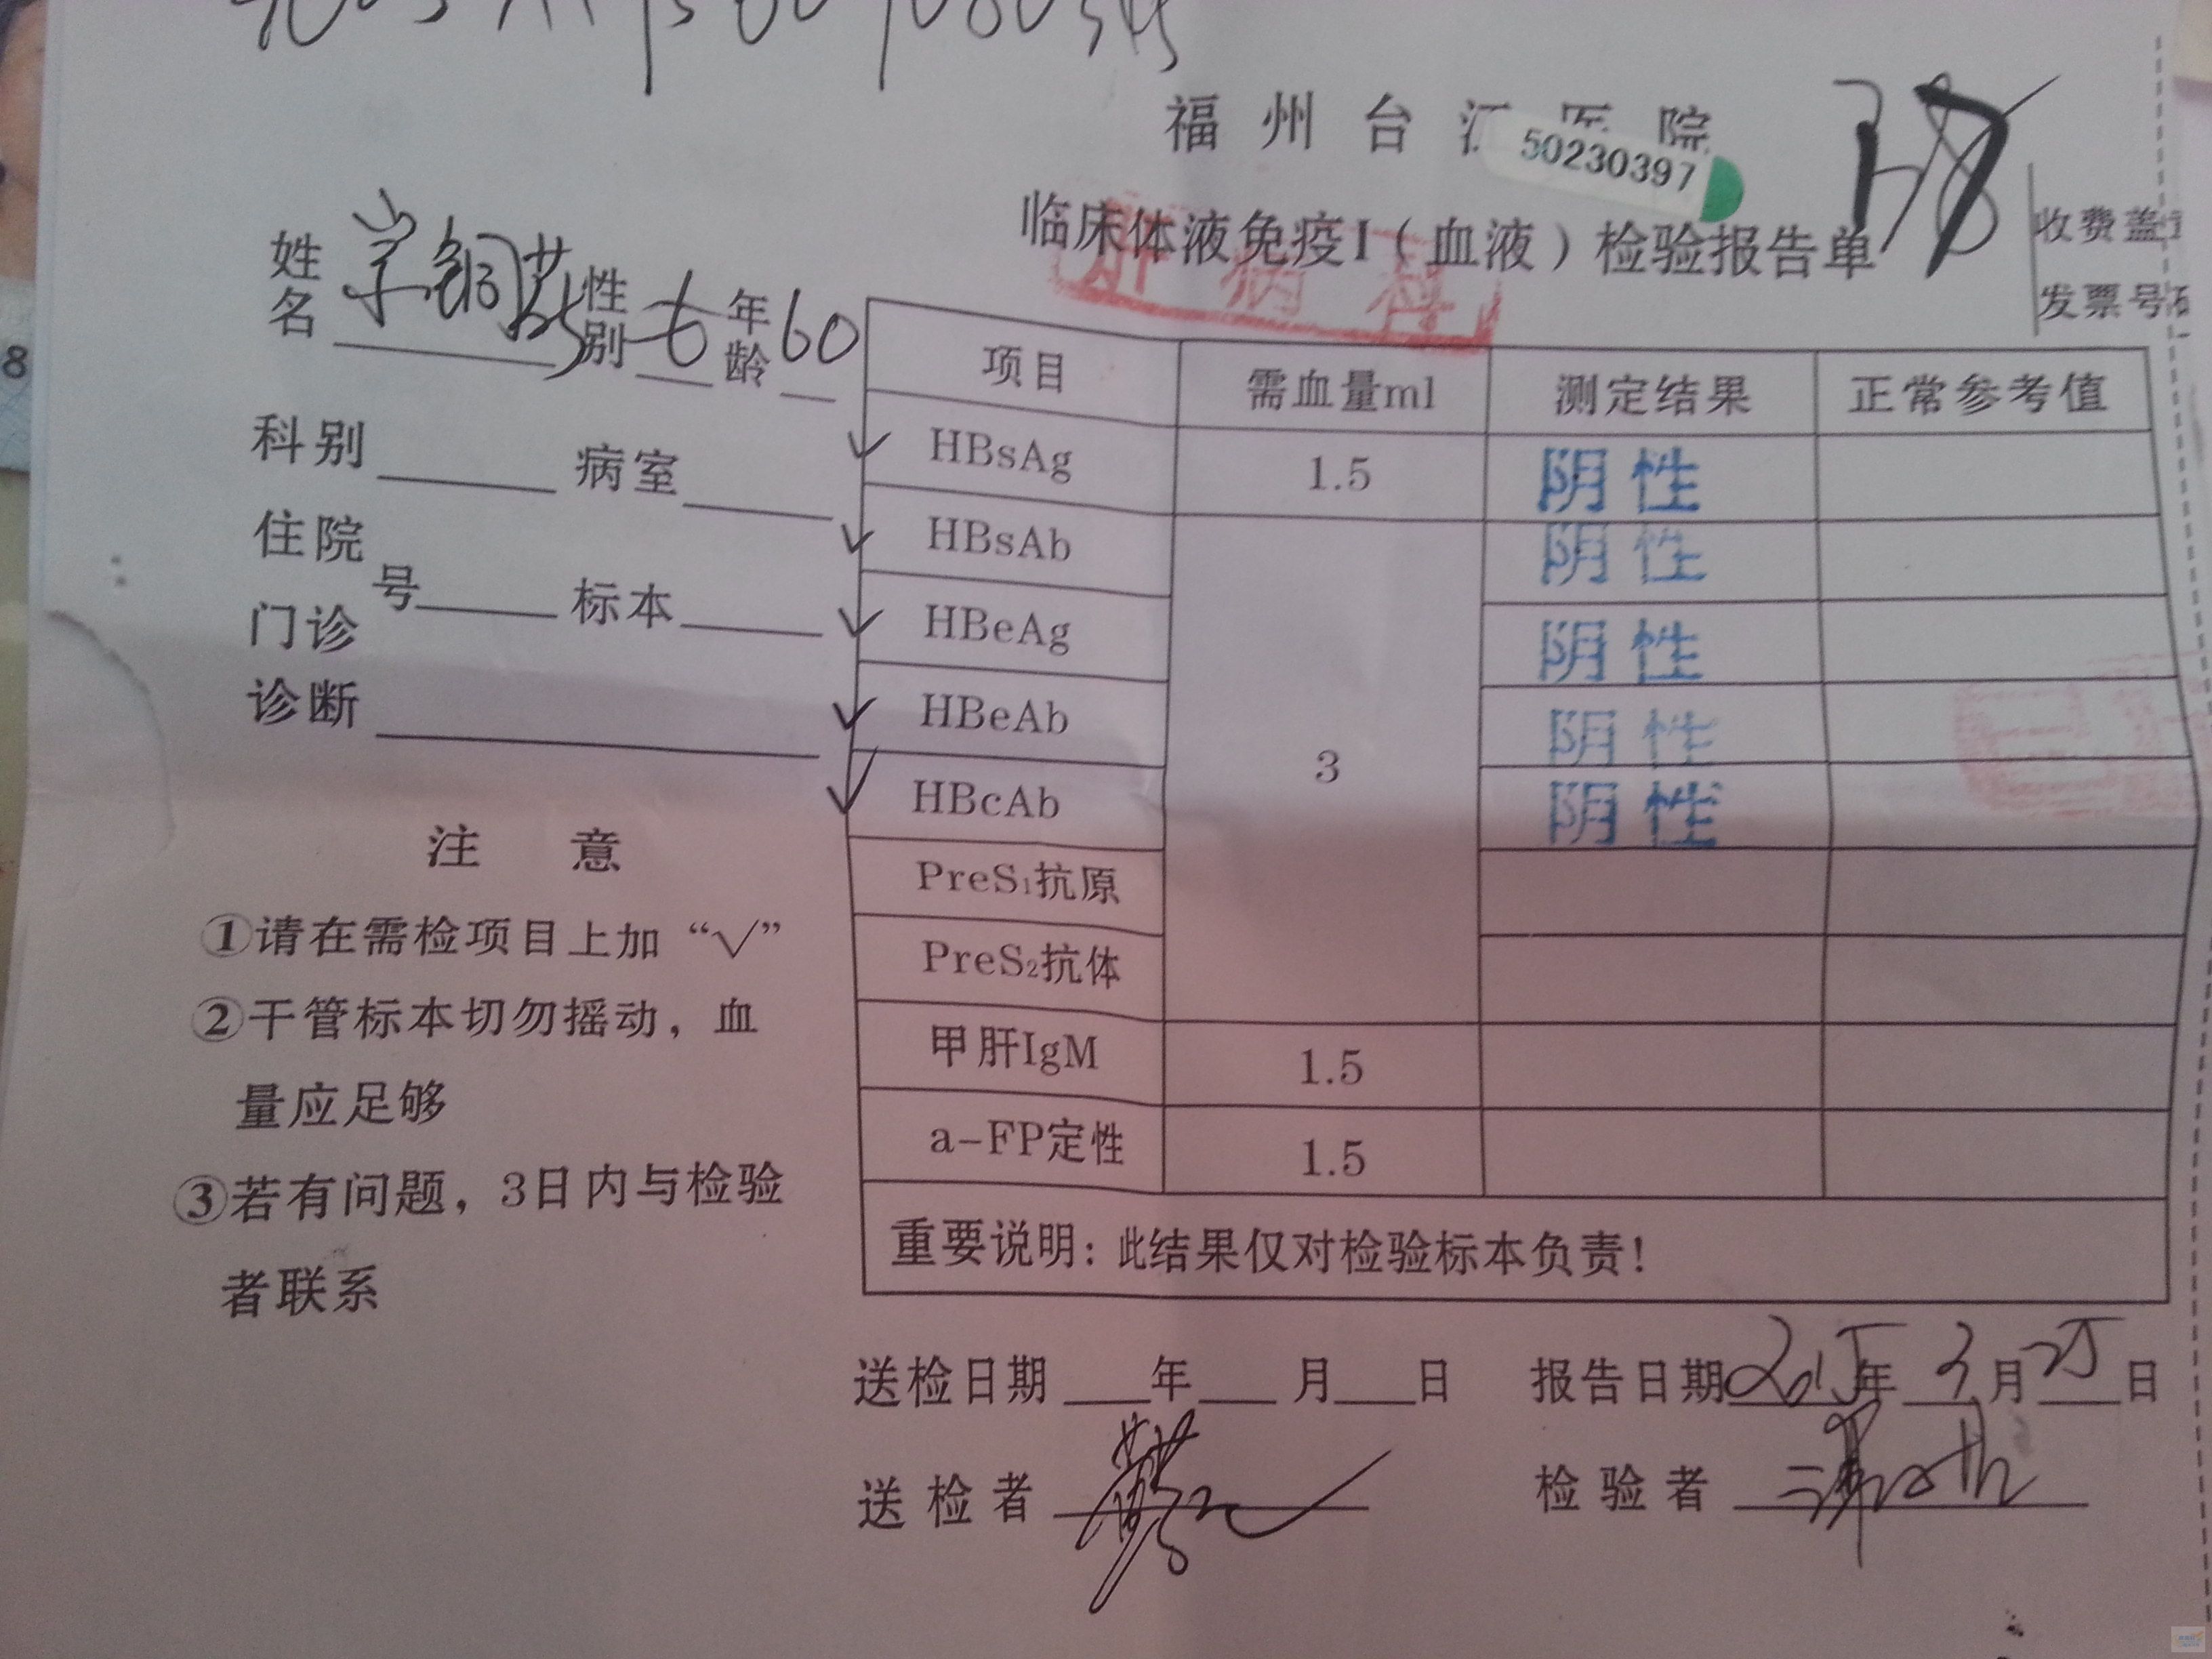 福州台江医院
50230397
临床体液免疫I（血液）检验报告单
收费盖
发票号
姓名 性别 女 年龄 60
科别 病室
住院号 标本
门诊
诊断
注 意
①请在需检项目上加“√”
②干管标本切勿摇动，血
量应足够
③若有问题，3日内与检验
者联系
项目 需血量ml 测定结果 正常参考值
√ HBsAg 1.5 阴性
√ HBsAb 3 阴性
√ HBeAg 阴性
√ HBeAb 阴性
√ HBcAb 阴性
PreS₁抗原
PreS₂抗体
甲肝IgM 1.5
a-FP定性 1.5
重要说明：此结果仅对检验标本负责！
送检日期 年 月 日 报告日期 2015年 3月 25日
送检者 检验者
肝病科
8